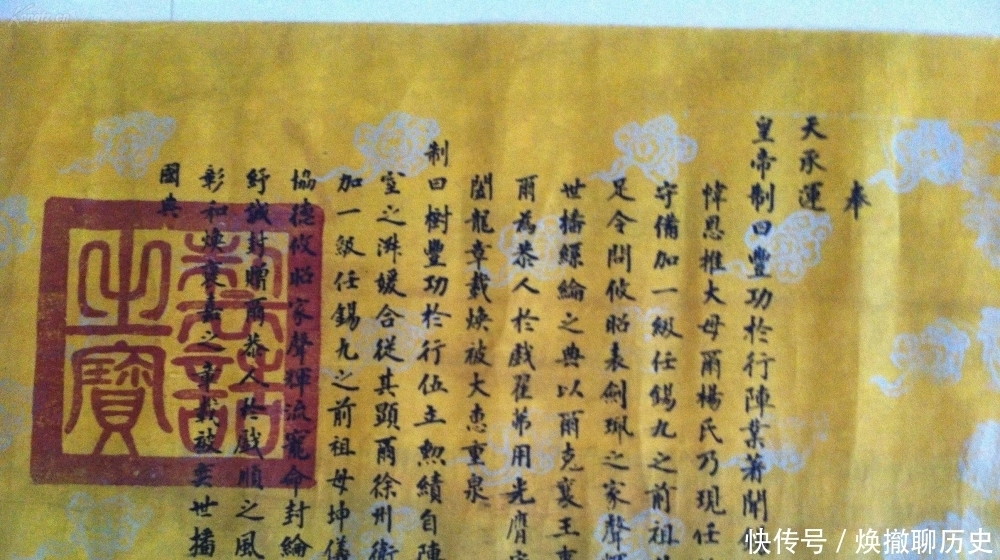 奉
天承運
皇帝制曰豐功於行陣業著聞
幃恩推大母爾楊氏乃現任
守備加一級任錫九之前祖
足令問攸昭表劍珮之家聲
世播綵綸之典以爾克襄王
爾為恭人於戲翟茀用光膺
閫龍章載煥被大惠重泉
制曰樹豐功於行伍丕勲績自陣
室之淋媛合從其顯爾徐州衛
加一級任錫九之前祖母坤儀
協德攸昭家聲輝流寵命封綸
紓誠封贈爾恭人於戲順之風
彰和煥襃嘉之章載被奕世播
國典
制誥之寶
快传号 / 焕撤聊历史